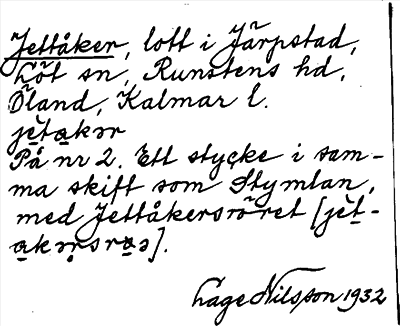 Jettåker, lott i Järpstad,
Löt sn, Runstens hd,
Öland, Kalmar l.
jèta̱kər
På nr 2. Ett stycke i sam-
ma skift som Stymlan,
med Jettåkersröret [jèt-
a̱kərsrəə].
Låge Nilsson 1932